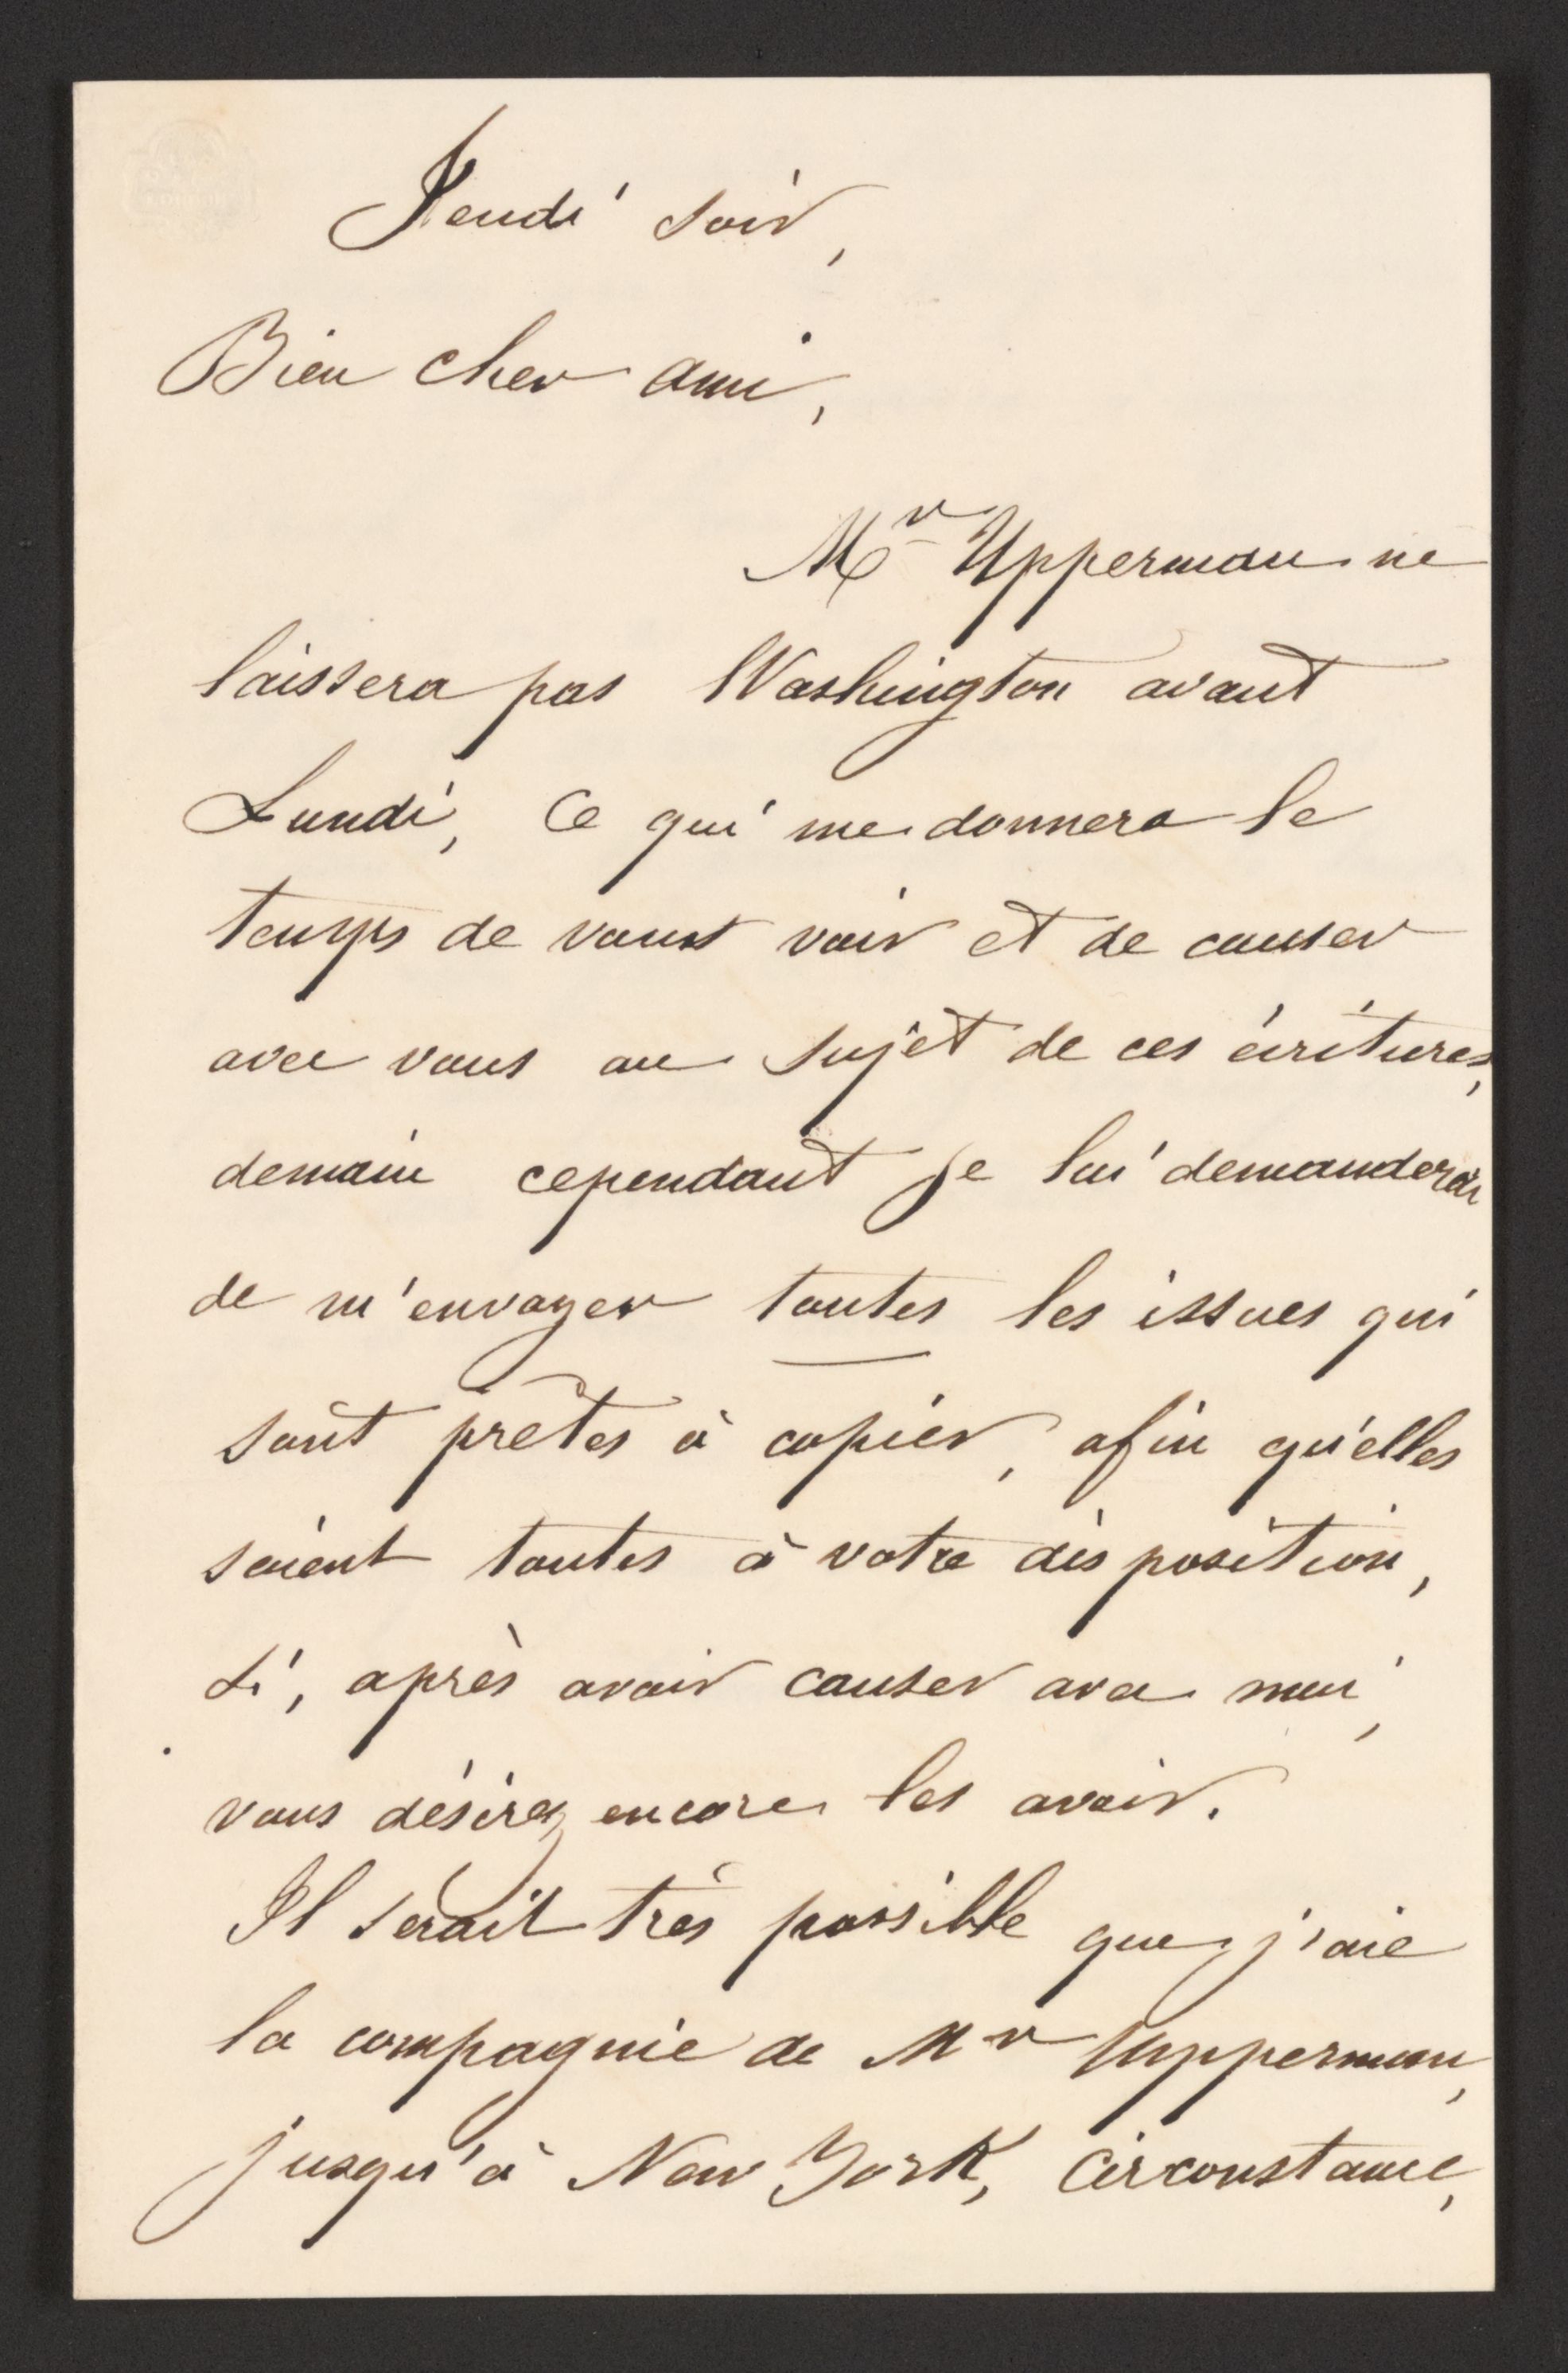 Jeudi soir,
Bien cher ami,
Mr Upperman ne
laissera pas Washington avant
Lundi, ce qui me donnera le
temps de vous voir et de causer
avec vous au sujet de ces écritures,
demain cependant je lui demanderai
de m'envoyer toutes les issues qui
sont prêtes à copier, afin qu'elles
soient toutes à votre disposition,
si, après avoir causer avec moi,
vous désirez encore les avoir.
Il serait très possible que j'aie
la compagnie de Mr Upperman,
jusqu'à New York, circonstance,